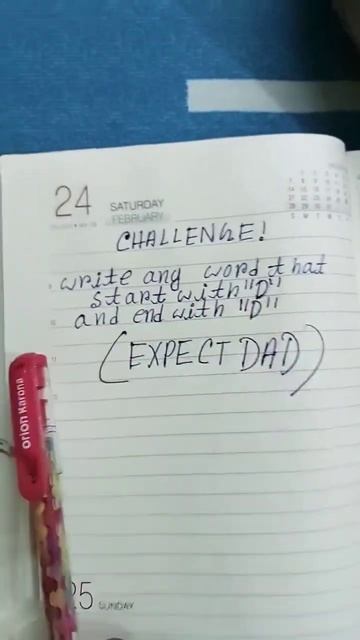 24 SATURDAY
FEBRUARY
CHALLENGE!
write any word that
start with "D"
and end with "D"
(EXPECT DAD)
orion Karona
25 SUNDAY